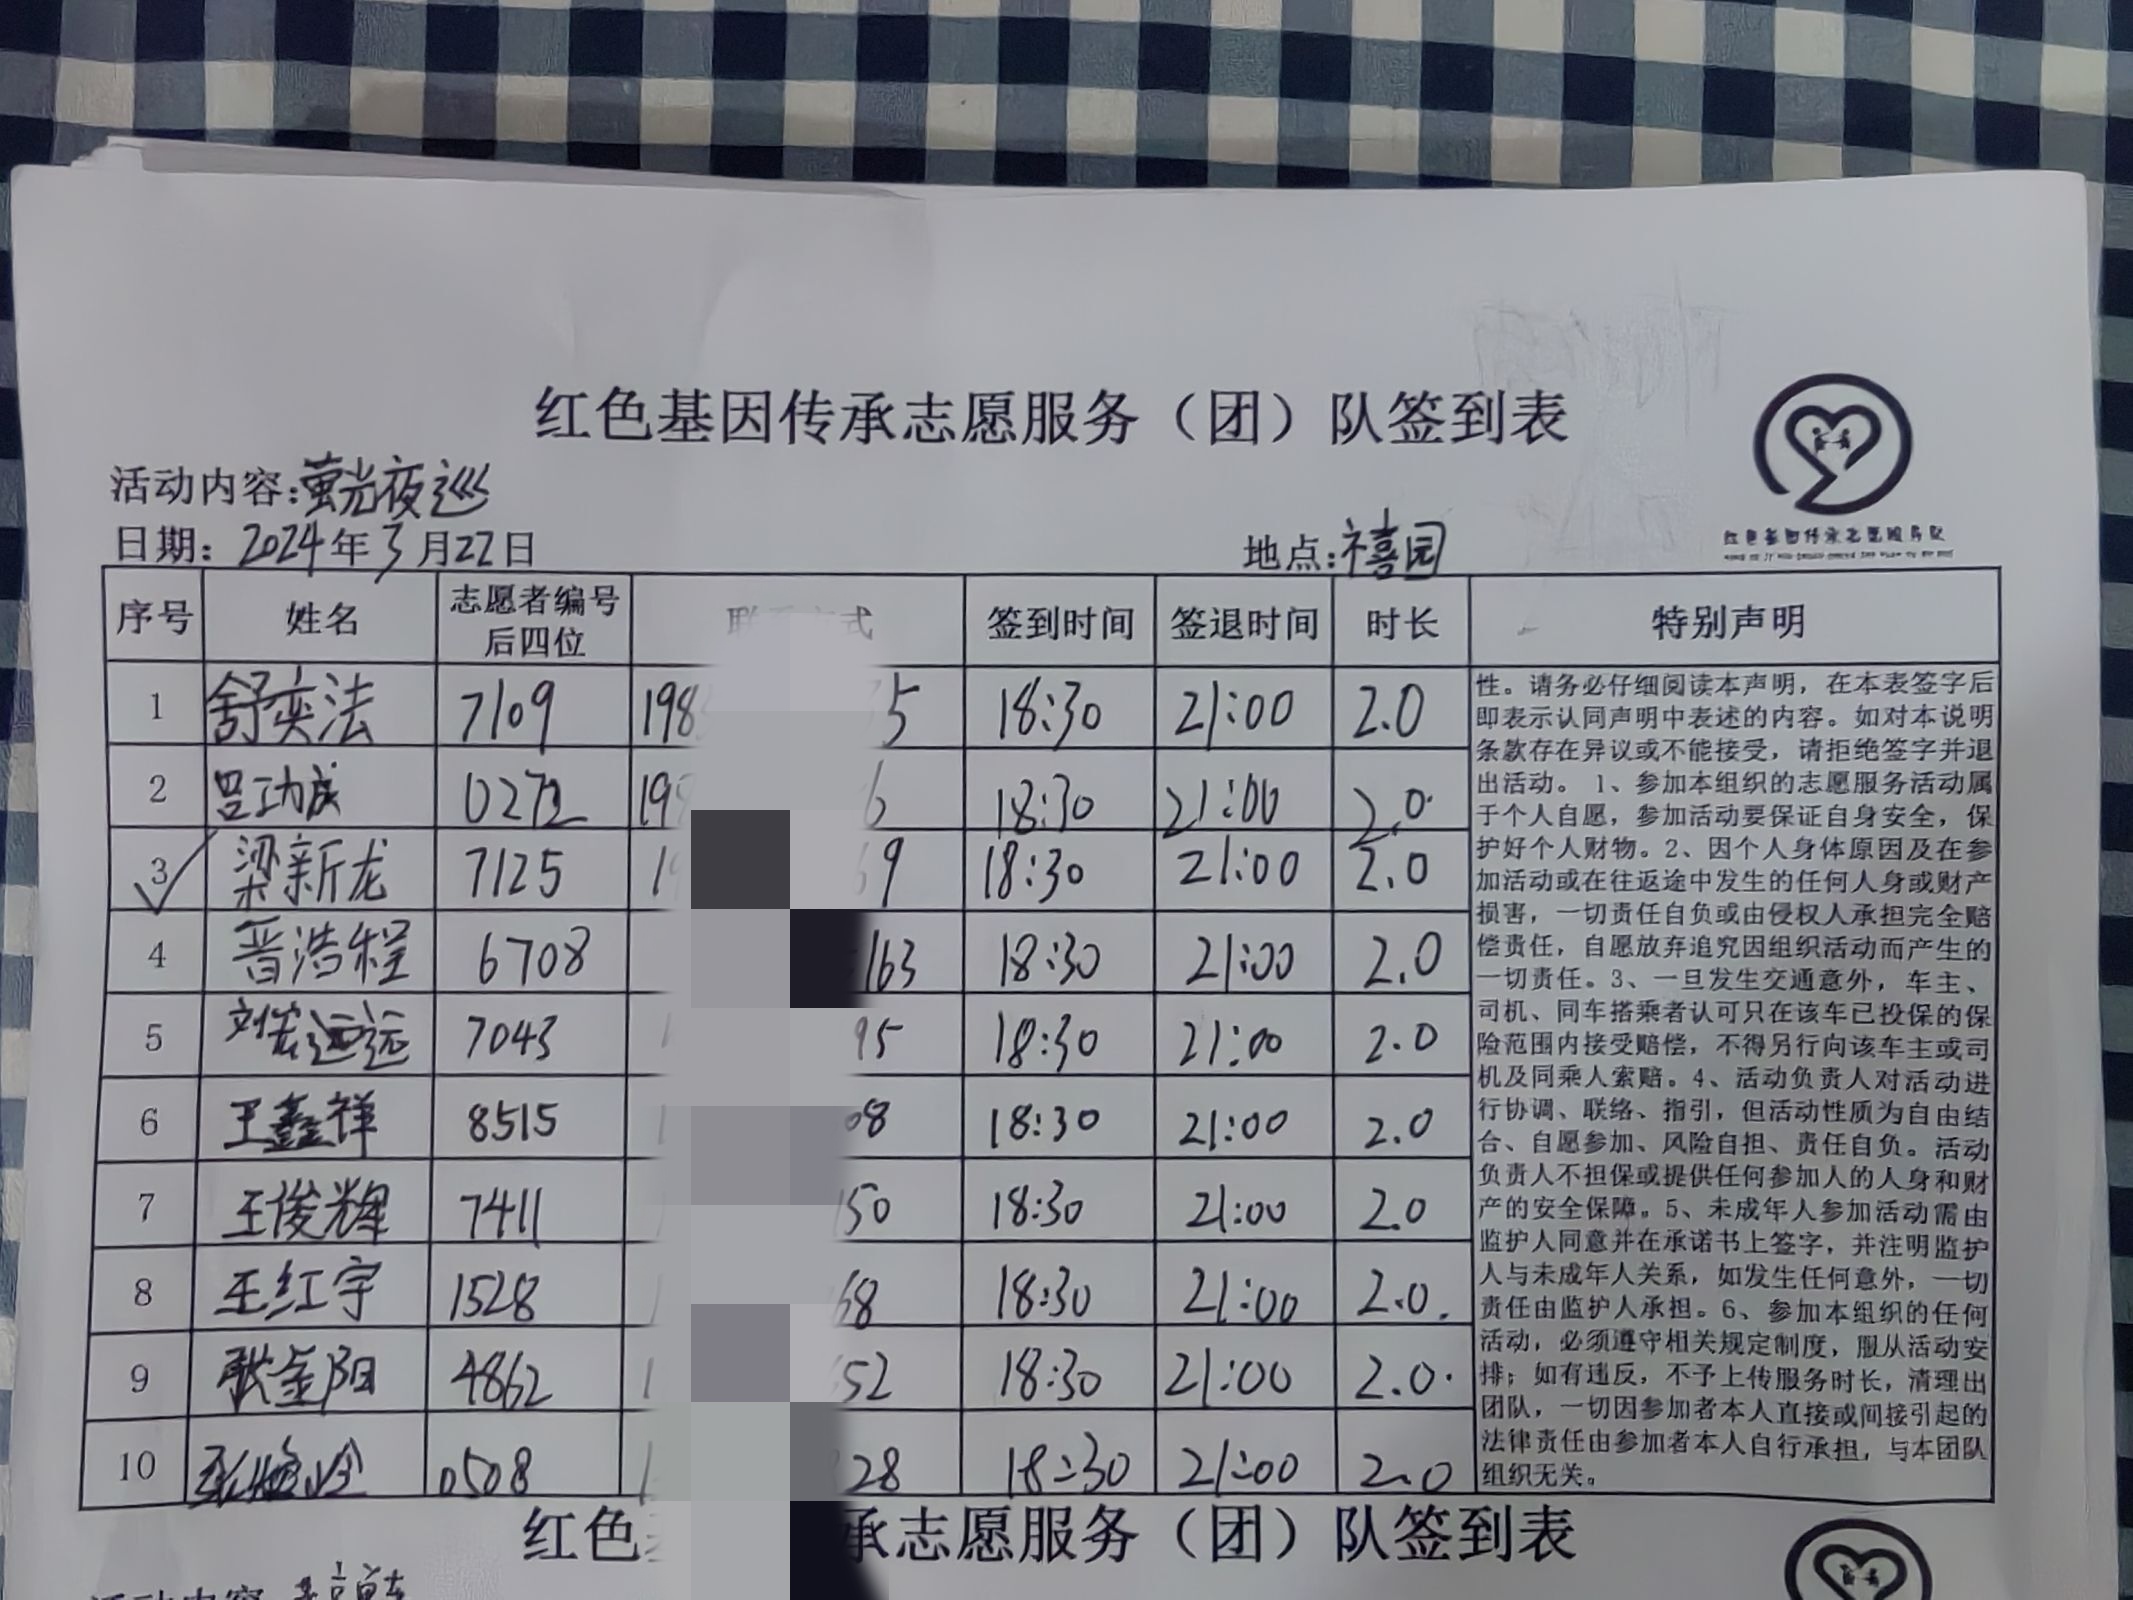 红色基因传承志愿服务（团）队签到表
活动内容:萤光夜巡
日期: 2024年3月22日 地点:禧园
序号 姓名 志愿者编号后四位 签到时间 签退时间 时长 特别声明
1 舒奕法 7109 198 5 18:30 21:00 2.0
2 吕功成 0272 19 6 18:30 21:00 2.0
3 梁新龙 7125 1 9 18:30 21:00 2.0
4 晋浩程 6708 163 18:30 21:00 2.0
5 刘宏远 7043 95 18:30 21:00 2.0
6 王鑫祥 8515 08 18:30 21:00 2.0
7 王俊辉 7411 50 18:30 21:00 2.0
8 王红宇 1528 68 18:30 21:00 2.0.
9 张金阳 4862 1 52 18:30 21:00 2.0.
10 0508 28 18:30 21:00 2.0
性。请务必仔细阅读本声明，在本表签字后
即表示认同声明中表述的内容。如对本说明
条款存在异议或不能接受，请拒绝签字并退
出活动。1、参加本组织的志愿服务活动属
于个人自愿，参加活动要保证自身安全，保
护好个人财物。2、因个人身体原因及在参
加活动或在往返途中发生的任何人身或财产
损害，一切责任自负或由侵权人承担完全赔
偿责任，自愿放弃追究因组织活动而产生的
一切责任。3、一旦发生交通意外，车主、
司机、同车搭乘者认可只在该车已投保的保
险范围内接受赔偿，不得另行向该车主或司
机及同乘人索赔。4、活动负责人对活动进
行协调、联络、指引，但活动性质为自由结
合、自愿参加、风险自担、责任自负。活动
负责人不担保或提供任何参加人的人身和财
产的安全保障。5、未成年人参加活动需由
监护人同意并在承诺书上签字，并注明监护
人与未成年人关系，如发生任何意外，一切
责任由监护人承担。6、参加本组织的任何
活动，必须遵守相关规定制度，服从活动安
排；如有违反，不予上传服务时长，清理出
团队，一切因参加者本人直接或间接引起的
法律责任由参加者本人自行承担，与本团队
组织无关。
红色 承志愿服务（团）队签到表